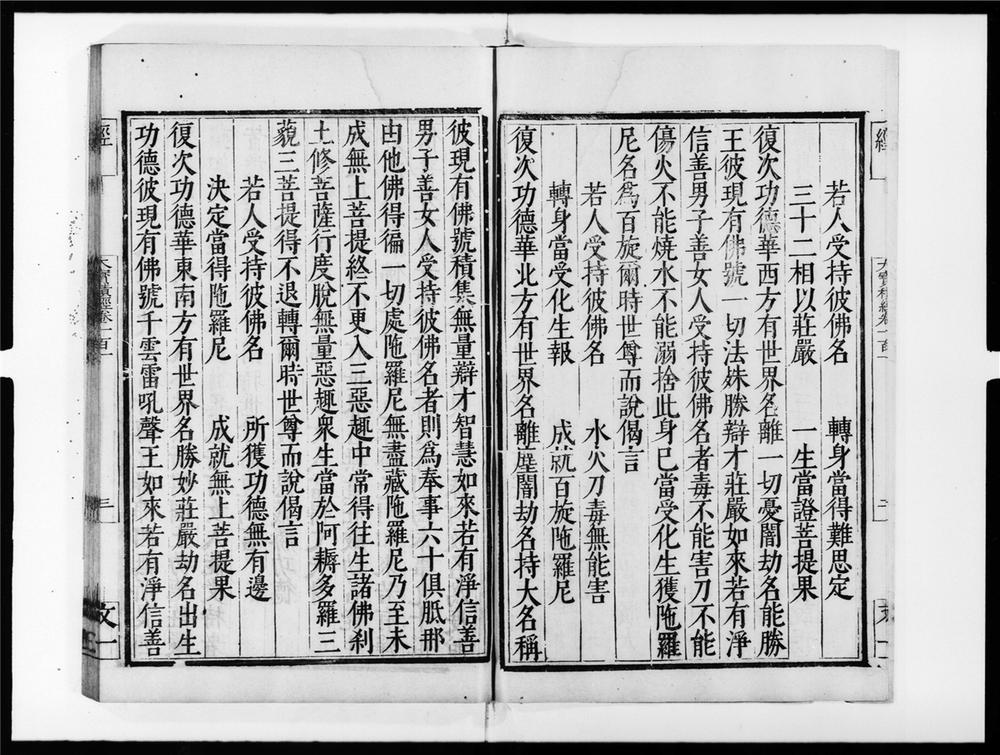 經
大寶積經卷一百一
若人受持彼佛名　轉身當得難思定
三十二相以莊嚴　一生當證菩提果
復次功德華西方有世界名離一切憂闇劫名能勝
王彼現有佛號一切法姝勝辯才莊嚴如來若有淨
信善男子善女人受持彼佛名者毒不能害刀不能
傷火不能燒水不能溺捨此身已當受化生獲陁羅
尼名爲百旋爾時世尊而說偈言
若人受持彼佛名　水火刀毒無能害
轉身當受化生報　成就百旋陁羅尼
復次功德華北方有世界名離塵闇劫名持大名稱
彼現有佛號積集無量辯才智慧如來若有淨信善
男子善女人受持彼佛名者則爲奉事六十俱胝那
由他佛得徧一切處陁羅尼無盡藏陁羅尼乃至未
成無上菩提終不更入三惡趣中常得往生諸佛刹
土修菩薩行度脫無量惡趣衆生當於阿耨多羅三
藐三菩提得不退轉爾時世尊而說偈言
若人受持彼佛名　所獲功德無有邊
決定當得陁羅尼　成就無上菩提果
復次功德華東南方有世界名勝妙莊嚴劫名出生
功德彼現有佛號千雲雷吼聲王如來若有淨信善
經
大寶積經卷一百一
三
文一